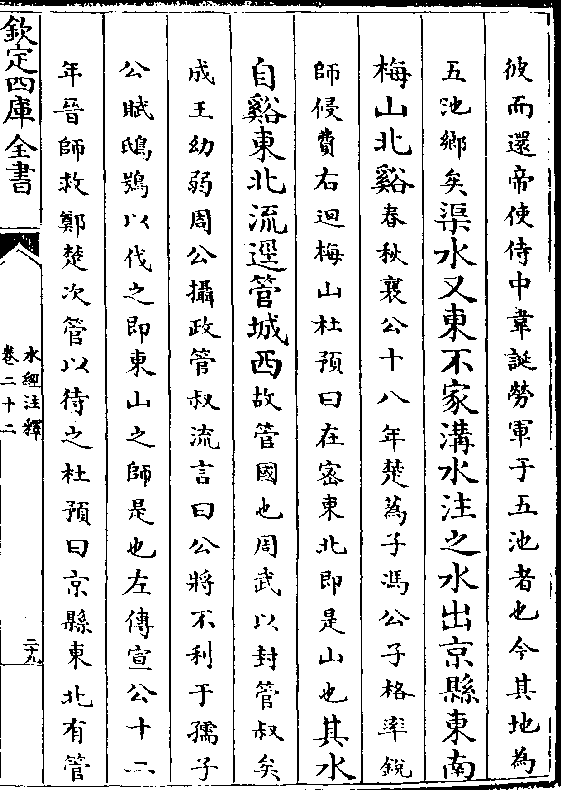 彼而還帝使侍中韋誕勞軍于五池者也今其地為
五池鄉矣渠水又東不家溝水注之水出京縣東南
梅山北谿春秋襄公十八年楚蒍子馮公子格率銳
師侵費右迴梅山杜預曰在密東北即是山也其水
自谿東北流逕管城西故管國也周武以封管叔矣
成王幼弱周公攝政管叔流言曰公將不利于孺子
公賦鴟鴞以伐之即東山之師是也左傳宣公十二
年晉師救鄭楚次管以待之杜預曰京縣東北有管
欽定四庫全書
水經注釋
卷二十二
二十九